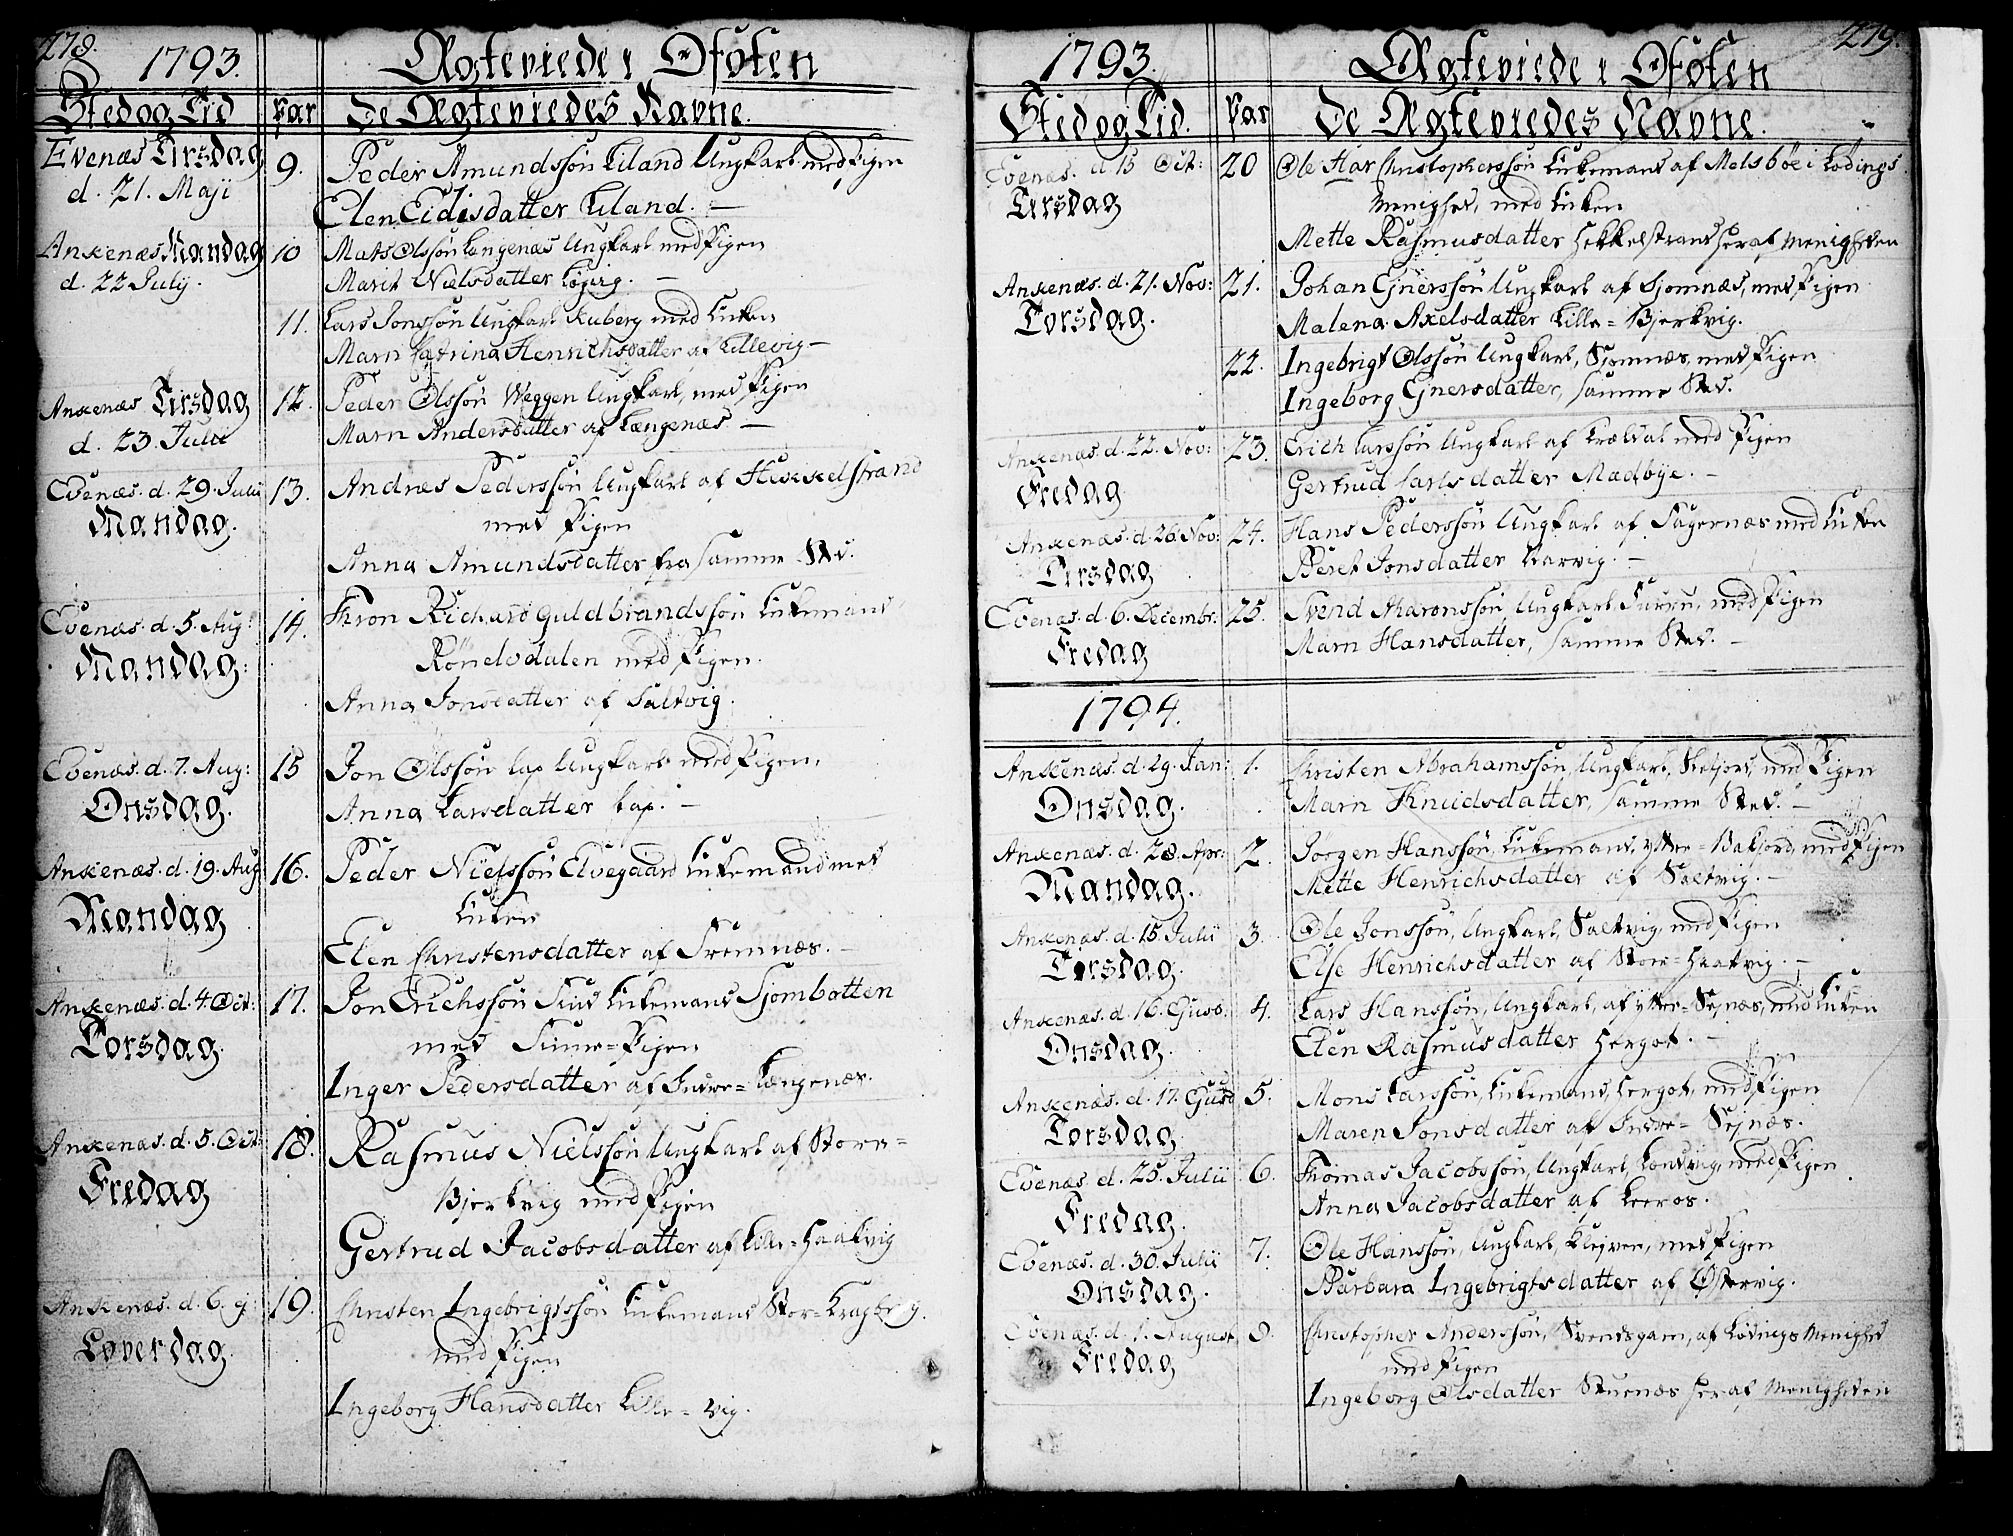 278.
1793.
Ægteviede i Ofoten
Sted og Tid
Par
De Ægteviedes Navne.
Evenæs Tirsdag
d. 21. Maji
9.
Peder Amundssøn Liland Ungkarl med Pigen
Elen Eidisdatter Liland. —
Ankenæs Mandag
d. 22 July.
10
Mats Olssøn Længenæs Ungkarl med Pigen
Marit Nielsdatter —
11.
Lars Jonssøn Ungkarl Kuberg med Enken
Marn Catrina Henrichsdatter af Lillevig —
Ankenæs Tirsdag
d. 23. Julii
12.
Peder Olssøn Weggen Ungkarl, med Pigen
Marn Andersdatter af Længenæs —
Evenæs. d. 29. Julii
Mandag.
13.
Andreas Pederssøn Ungkarl af Hekkelstrand
med Pigen
Anna Amundsdatter fra samme Sted.
Evenæs. d. 5. Aug:
Mandag:
14.
Thron Richard Guldbrandssøn Enkemand
med Pigen.
Anna Jonsdatter af Saltvig.
Evenæs. d. 7. Aug:
Onsdag.
15
Jon Olssøn Lap Ungkarl med Pigen,
Anna Larsdatter Lap. —
Ankenæs. d. 19. Aug
Mandag
16.
Peder Nielssøn Elvegaard Enkemand med
Enken
Elen Christensdatter af —
Ankenæs. d. 4. Oct:
Torsdag
17.
Jon Erichssøn Find Enkemand Sjombotten
med Finne-Pigen
Inger Pedersdatter af Indre-Længenæs.
Ankenæs. d. 5. Oct:
Fredag
18.
Rasmus Nielssøn Ungkarl af Store-
Bjerkvig med Pigen
Gertrud Jacobsdatter af Lille-Haakvig
Ankenæs. d. 6. ej:
Løverdag.
19.
Christen Ingebrigtssøn Enkemand
med Pigen
Ingeborg Hansdatter Lille-Vig.
279.
1793.
Ægteviede i Ofoten
Sted og Tid.
Par
De Ægteviedes Navne.
Evenæs. d. 15 Oct:
Tirsdag
20
Ole Christopherssøn Enkemand af Melsbøe i Lødings
Menighed, med Enken
Mette Rasmusdatter Hekkelstrand her af Menigheden
Ankenæs. d. 21. Nov:
Torsdag.
21.
Johan Ejnerssøn Ungkarl af Sjomnæs, med Pigen
Malena Axelsdatter Lille-Bjerkvig.
22.
Ingebrigt Olssøn Ungkarl, Sjomnæs, med Pigen
Ingeborg Ejnersdatter, samme Sted.
Ankenæs. d. 22. Nov:
Fredag
23.
Erich Larssøn Ungkarl af Trældal med Pigen
Gertrud Carlsdatter Medbye. —
Ankenæs. d. 26 Nov:
Tirsdag
24.
Hans Pederssøn Ungkarl af Fagernæs med Enken
Beret Jonsdatter Narvig. —
Evenæs. d. 6. Decembr:
Fredag
25.
Svend Aaronssøn, Ungkarl, med Pigen
Marn Hansdatter, samme Sted. —
1794.
Ankenæs. d. 29. Jan:
Onsdag.
1.
Christen Abrahamssøn, Ungkarl, Skjfjord, med Pigen
Marn Knudsdatter, samme Sted. —
Ankenæs. d. 28. Apr:
Mandag.
2.
Jørgen Hanssøn, Enkemand, Ytter-, med Pigen
Mette Henrichsdatter af Saltvig. —
Ankenæs. d. 15. Julii
Tirsdag.
3.
Ole Jonssøn, Ungkarl, Saltvig, med Pigen
Else Henrichsdatter af Store-Haakvig. —
Ankenæs. d. 16. Ejusd:
Onsdag.
4.
Lars Hanssøn, Ungkarl, af Ytter-Sejnæs, med Enken
Elen Rasmusdatter Hergot. —
Ankenæs. d. 17. Ejusd
Torsdag
5.
Mons Larssøn, Enkemand, Hergot, med Pigen
Maren Jonsdatter af Indre-Sejnæs.
Evenæs. d. 25. Julii
Fredag.
6.
Thomas Jacobssøn, Ungkarl, med Pigen
Anna Jacobsdatter af Leeros.
Evenæs. d. 30. Julii
Onsdag.
7.
Ole Hanssøn, Ungkarl, med Pigen
Barbara Ingebrigtsdatter af Østervig.
Evenæs. d. 1. August,
Fredag
8.
Christopher Anderssøn, Svendsgam, af Lødings Menighed
med Pigen
Ingeborg Olsdatter Stuenæs her af Menigheden